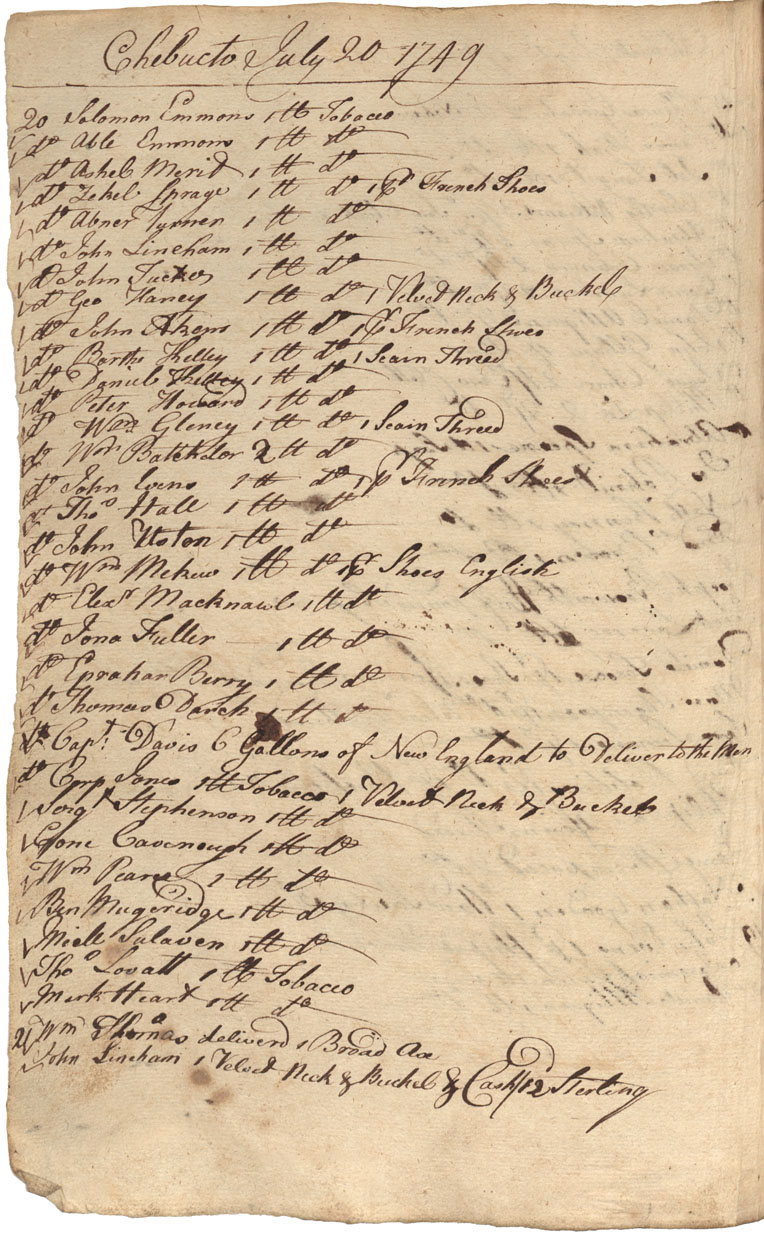 Chebucto July 20 1749
20 Solomon Emmons 1 lb Tobacco
do Able Emmons 1 lb do
do Ashel Merid 1 lb do
do Zekel Sprage 1 lb do 1 pr French Shoes
do Abner Turner 1 lb do
do John Lineham 1 lb do
do John Tucker 1 lb do
do Geo Haney 1 lb do 1 Velvet Neck & Buckel
do John Akens 1 lb do 1 pr French Shoes
do Bartho Kelley 1 lb do 1 Scain Threed
do Daniel Kelley 1 lb do
do Peter Howard 1 lb do
do Wm Gleney 1 lb do 1 Scain Threed
do Wm Batchelor 2 lb do
do John Evens 1 lb do 1 pr French Shoes
do Thos Hall 1 lb do
do John Uston 1 lb do
do Wm Mekew 1 lb do 1 pr Shoes English
do Elexr Macknawl 1 lb do
do Jona Fuller 1 lb do
do Eprahar Berry 1 lb do
do Thomas Darck 1 lb do
do Capt. Davis 6 Gallons of New England to Deliver to the Men
do Corp Jones 1 lb Tobacco 1 Velvet Neck & Buckel
Sergt Stephenson 1 lb do
Cavenough 1 lb do
Wm Pearce 1 lb do
Ben Mugeridge 1 lb do
Niell Salaven 1 lb do
Thos Lovatt 1 lb Tobacco
Mark Heart 1 lb do
21 Wm Thomas deliverd 1 Broad Ax
John Lineham 1 Velvet Neck & Buckel & Cash /12 Sterling